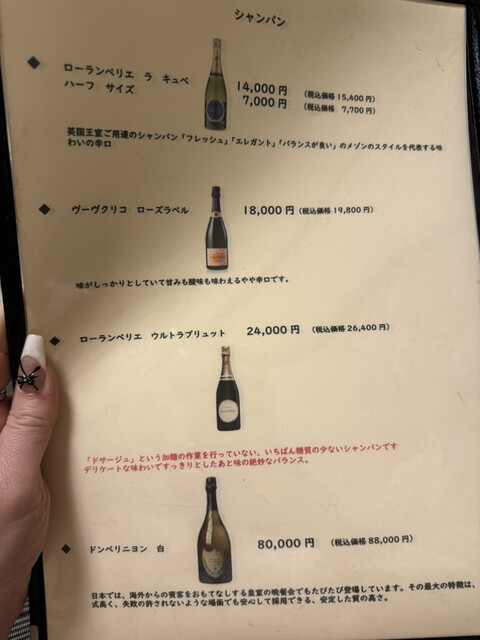 シャンパン
◆ ローランペリエ ラ キュベ 14,000円 (税込価格 15,400円)
ハーフ サイズ 7,000円 (税込価格 7,700円)
英国王室ご用達のシャンパン「フレッシュ」「エレガント」「バランスが良い」のメゾンのスタイルを代表する味
わいの辛口
◆ ヴーヴクリコ ローズラベル 18,000円 (税込価格 19,800円)
味がしっかりとしていて甘みも酸味も味わえるやや辛口です。
◆ ローランペリエ ウルトラブリュット 24,000円 (税込価格 26,400円)
「ドサージュ」という加糖の作業を行っていない、いちばん糖質の少ないシャンパンです
デリケートな味わいですっきりとしたあと味の絶妙なバランス。
◆ ドンペリニヨン 白 80,000円 (税込価格 88,000円)
日本では、海外からの賓客をおもてなしする皇室の晩餐会でもたびたび登場しています。その最大の特徴は、
式高く、失敗の許されないような場面でも安心して採用できる、安定した質の高さ。